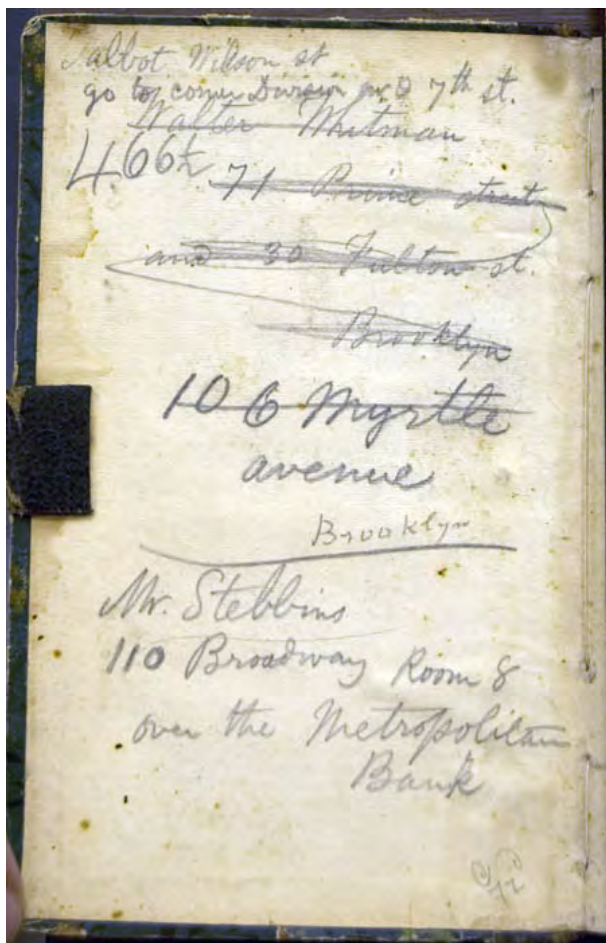 Talbot Wilson st
go to corner Division and 7th st.
Walter Whitman
4.66½
71 Prince street
and 30 Fulton st.
Brooklyn
106 Myrtle
avenue
Brooklyn
Mr. Stebbins
110 Broadway Room 8
over the Metropolitan
Bank